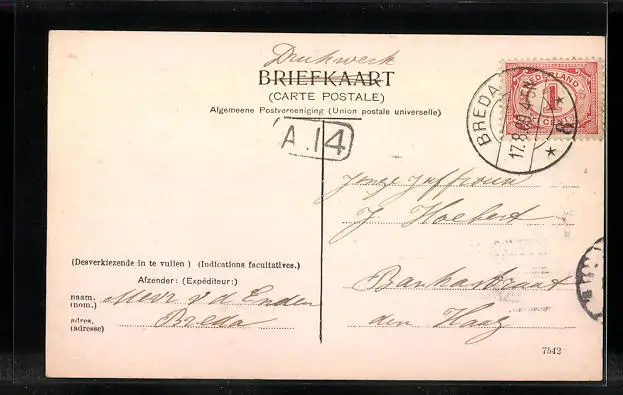 Drukwerk
BRIEFKAART
(CARTE POSTALE)
Algemeene Postvereeniging (Union postale universelle)
NEDERLAND
1
CENT
BREDA
17.8.09 4-5N
8
A.14
Jonge Juffrouw
J. Hoebert
Bankastraat
den Haag
(Desverkiezende in te vullen) (Indications facultatives.)
Afzender: (Expéditeur:)
naam. Mevr v d Enden
(nom.)
adres. Breda
(adresse)
7542